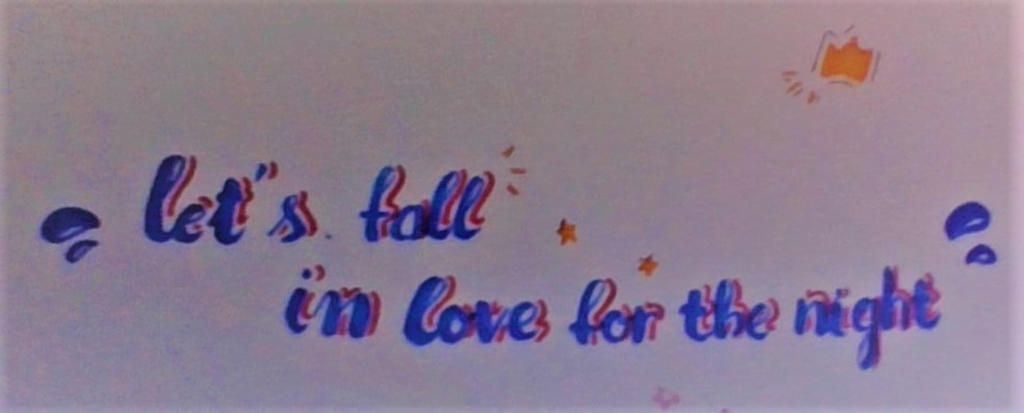 let"s fall
in love for the night